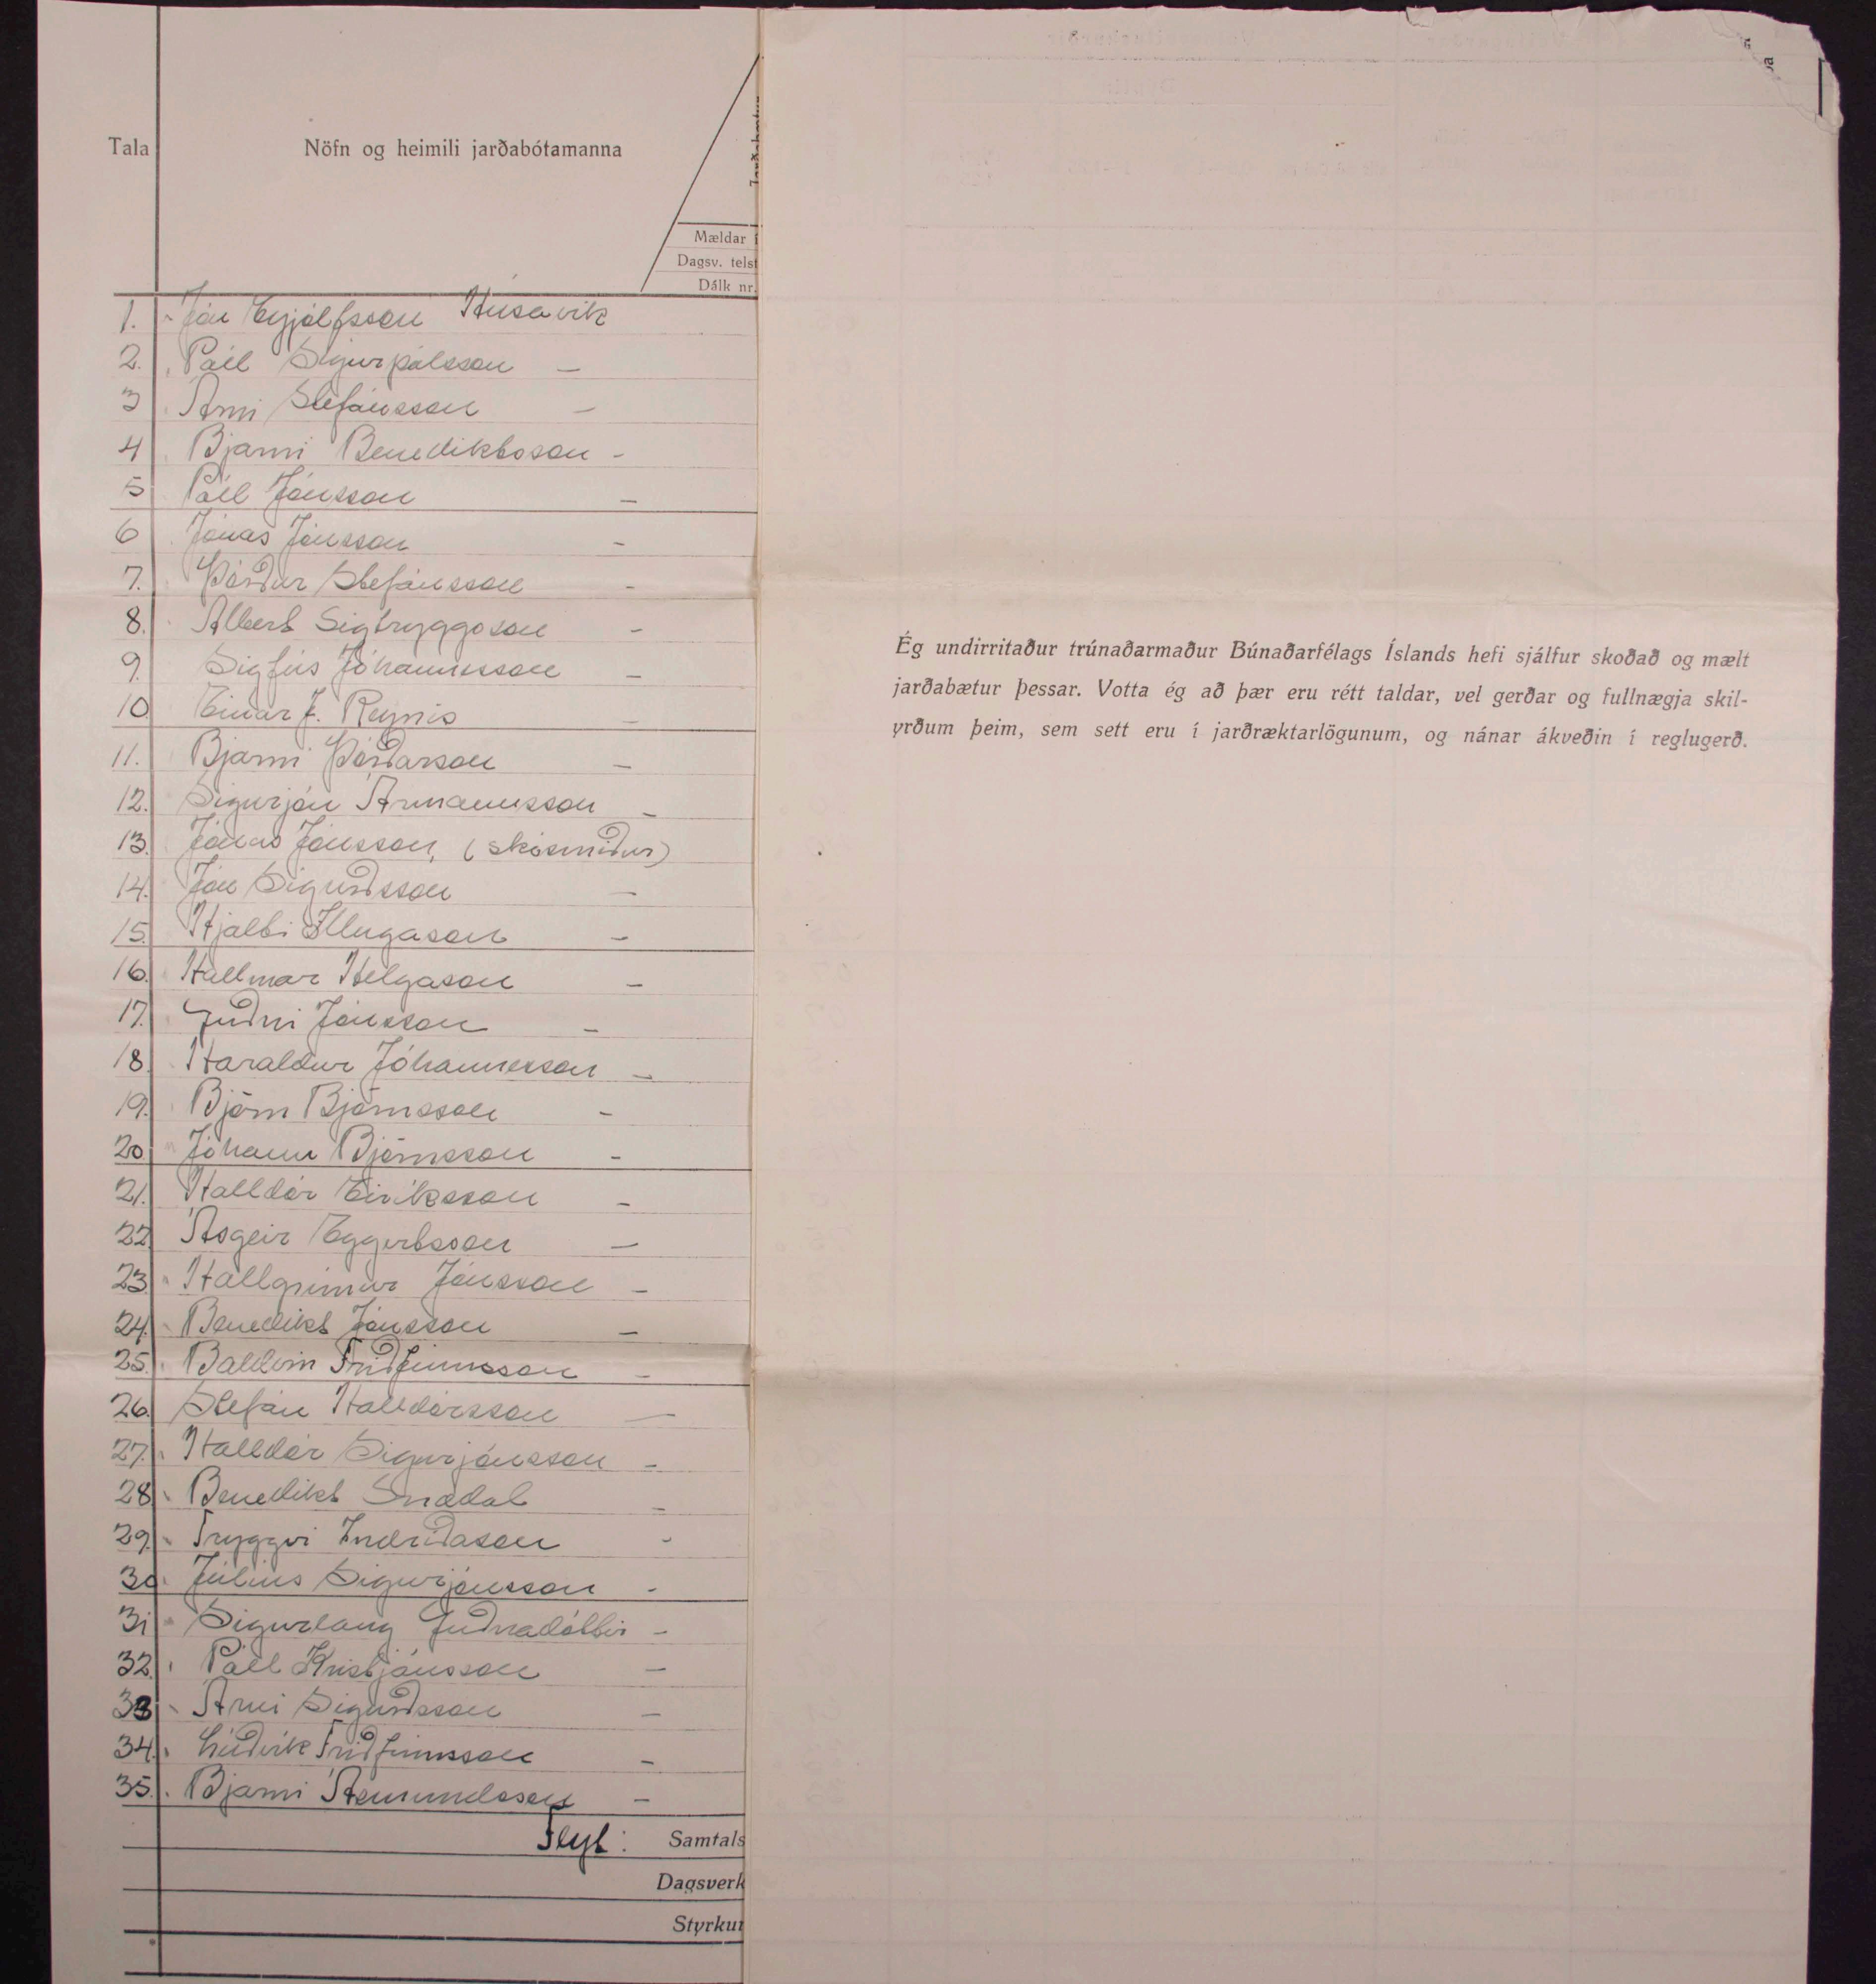 Tala
Nöfn og heimili jarðabótamanna
Mældar í
Dagsv. telst
Dálk nr.
1. Jón Eyjólfsson Húsavík
2. Páll Sigurpálsson —
3 Árni Stefánsson —
4 Bjarni Benediktsson -
5 Páll Jónsson —
6 Jónas Jónsson -
7. Þórður Stefánsson -
8. Albert Sigtryggsson -
9. Sigfús Jóhannesson -
10 Einar J. Reynis —
11. Bjarni Þórðarson —
12. Sigurjón Ármannsson -
13. Jónas Jónsson, (skósmiður)
14. Jón Sigurðsson —
15. Hjalti Illugason -
16. Hallmar Helgason -
17. Guðni Jónsson -
18. Haraldur Jóhannesson -
19. Björn Björnsson -
20. Jóhann Björnsson -
21. Halldór Eiríksson -
22. Ásgeir Eggertsson —
23. Hallgrímur Jónsson -
24. Benedikt Jónsson —
25. Baldvin Friðfinnsson -
26. Stefán Halldórsson —
27. Halldór Sigurjónsson -
28. Benedikt Snædal -
29. Tryggvi Indriðason -
30. Júlíus Sigurjónsson -
31 Sigurlaug Guðnadóttir -
32. Páll Kristjánsson —
33 Árni Sigurðsson —
34. Lúðvík Friðfinnsson -
35. Bjarni Ásmundsson —
Flyt: Samtals
Dagsverk
Styrkur
Ég undirritaður trúnaðarmaður Búnaðarfélags Íslands hefi sjálfur skoðað og mælt
jarðabætur þessar. Votta ég að þær eru rétt taldar, vel gerðar og fullnægja skil-
yrðum þeim, sem sett eru í jarðræktarlögunum, og nánar ákveðin í reglugerð.